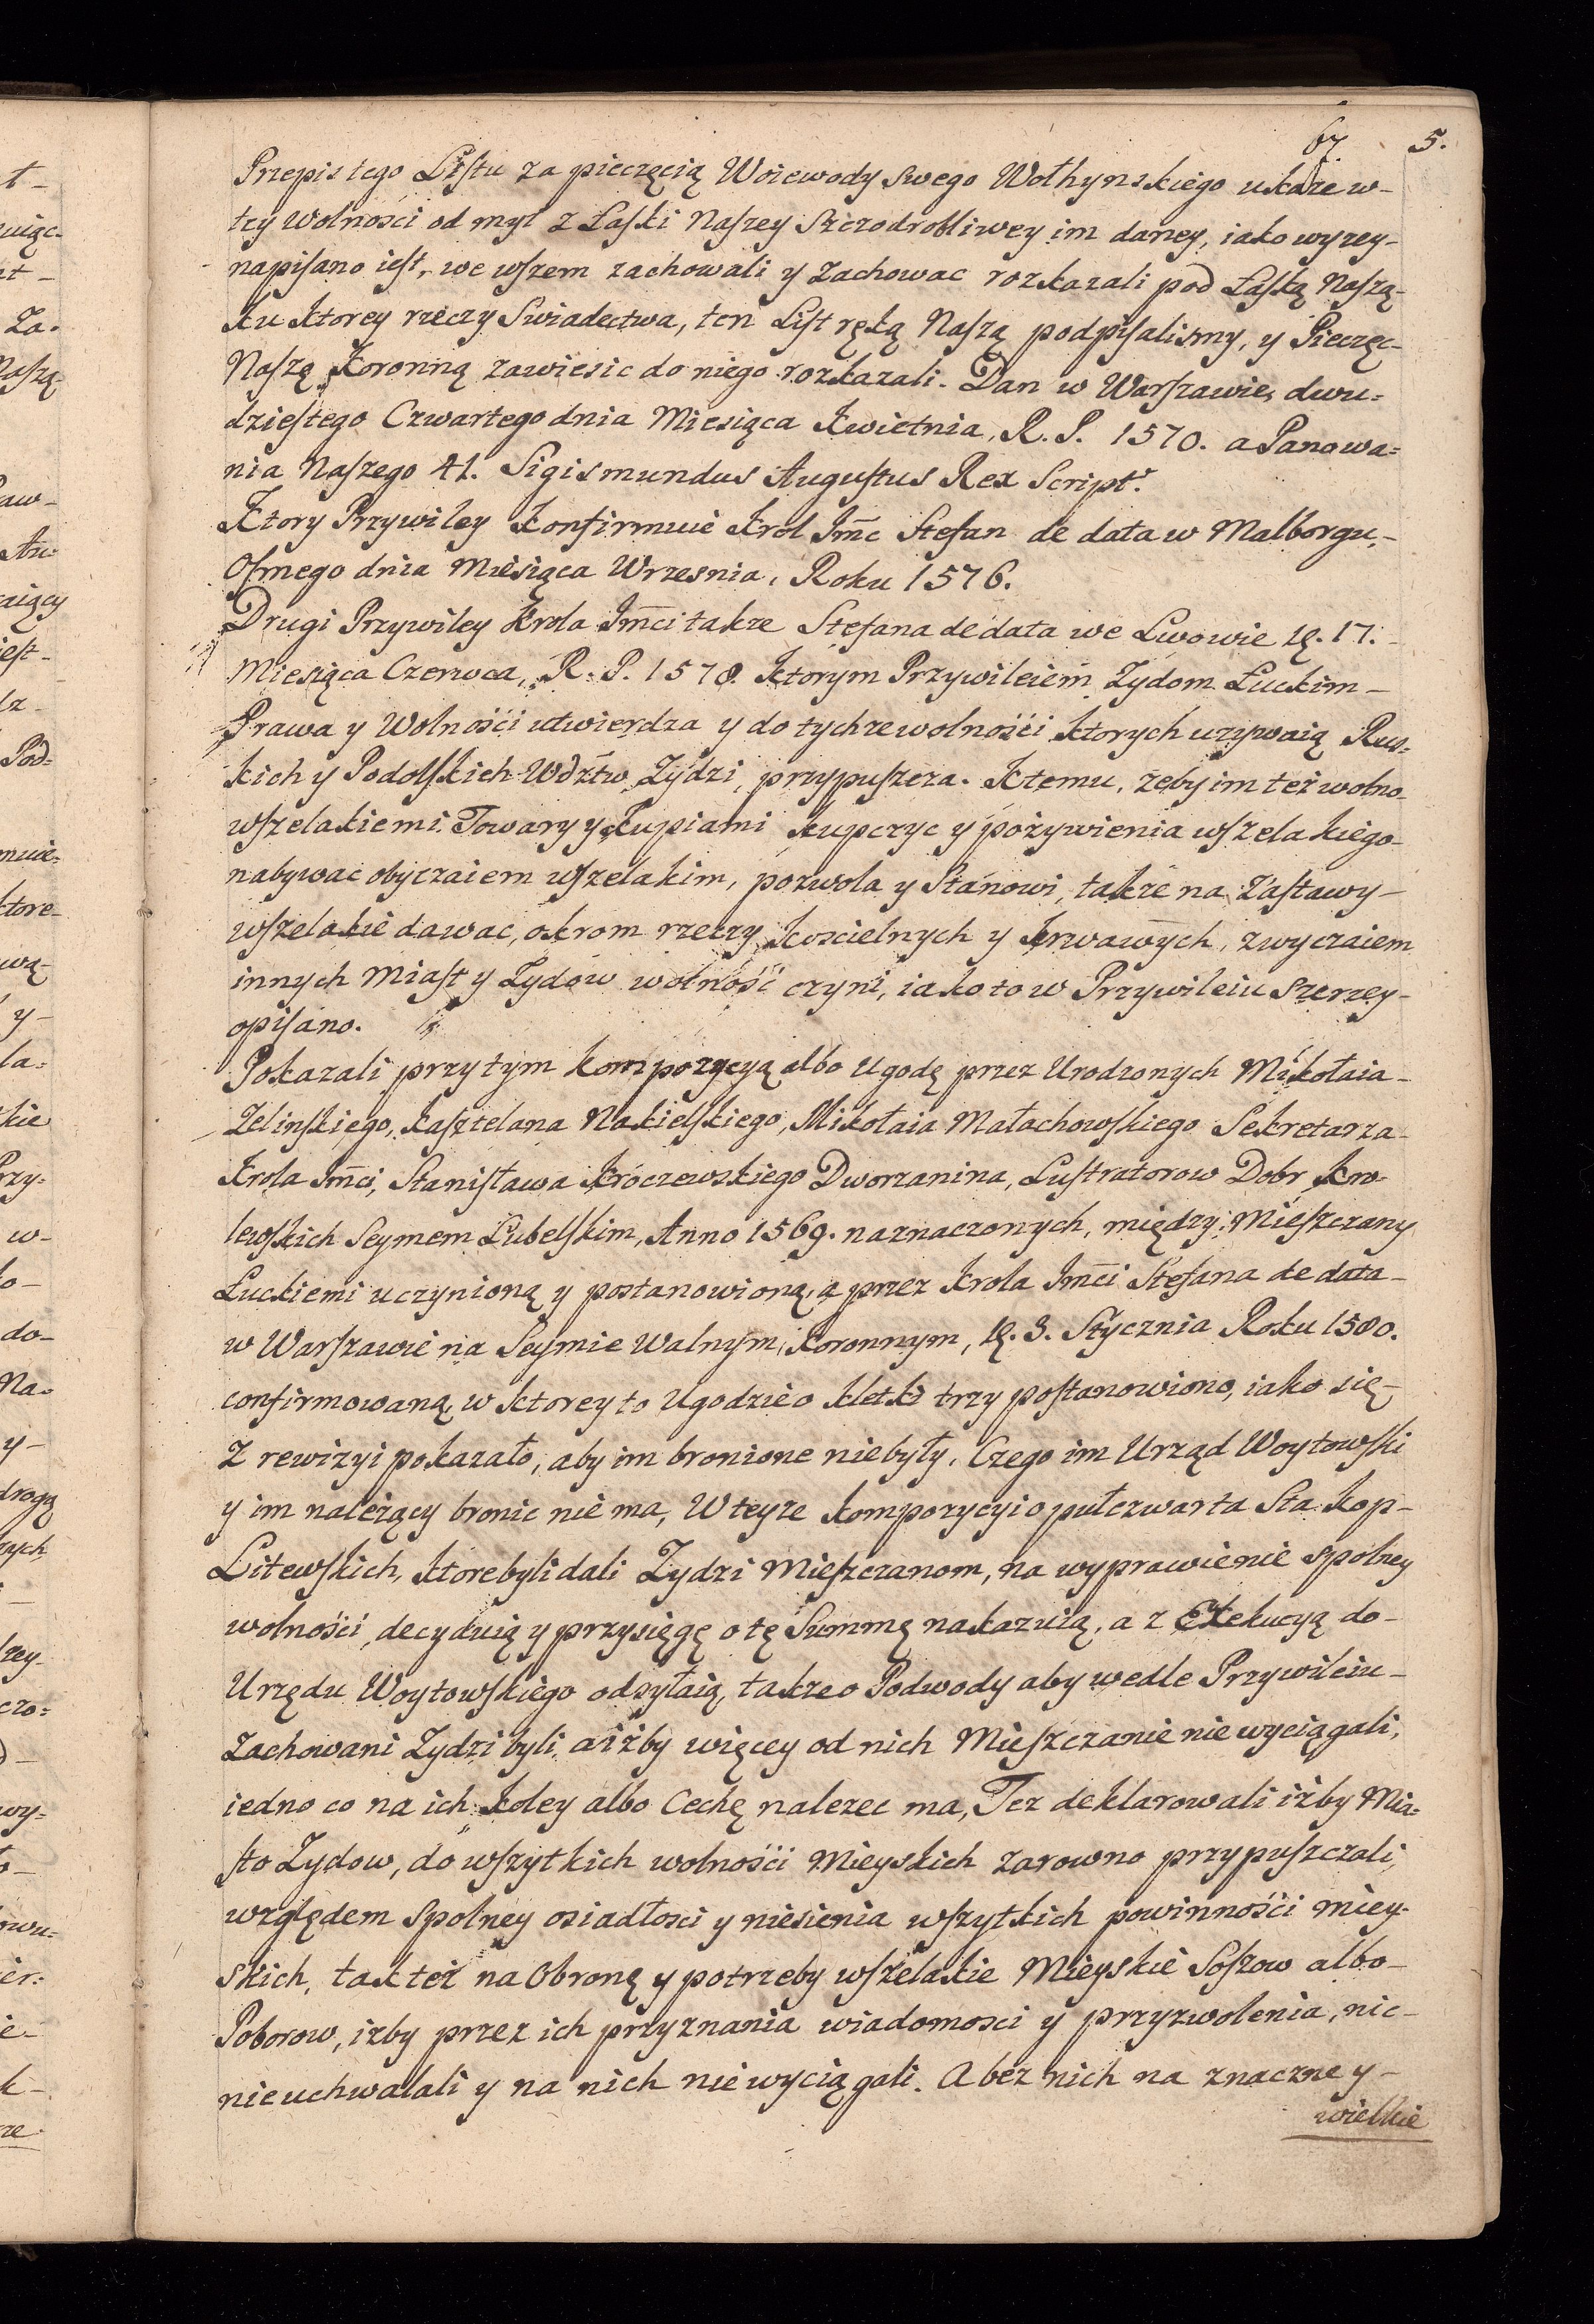 67. 5.
Przepis tego Listu za pieczęcią Woiewody swego Wołhynskiego ukaze w-
tey Wolnosci od myt z Łaski Naszey Szczodrobliwey im daney, iako wyzey-
napisano iest, we wszem zachowali y zachowac rozkazali pod Łaską Naszą-
ku ktorey rzeczy Swiadectwa, ten List ręką Naszą podpisalismy, y Pieczęc-
Naszę Koronną zawiesic do niego rozkazali. Dan w Warszawie, dwu=
dziestego Czwartego dnia Miesiąca Kwietnia, R. P. 1570. a Panowa=
nia Naszego 41. Sigismundus Augustus Rex Script:
Ktory Przywiley Konfirmuie Krol Jmc Stefan de data w Malborgu,-
Osmego dnia Miesiąca Wrzesnia, Roku 1576.
Drugi Przywiley Krola Jmci takze Stefana de data we Lwowie 17.-
Miesiąca Czerwca, R. P. 1578. Ktorym Przywileiem Zydom Łuckim-
Prawa y Wolnośći utwierdza y do tychze wolnośći ktorych uzywaią Rus=
kich y Podolskich Wdztw Zydzi, przypuszcza. Ktemu, zeby im też wolno-
wszelakiemi Towary y Kupiami kupczyc y pożywienia wszelakiego-
nabywac obyczaiem wszelakim, pozwola y Stanowi, takze na Zastawy-
wszelakie dawac, okrom rzeczy Koscielnych y Krwawych, zwyczaiem
innych Miast y Zydow wolność czyni, iako to w Przywileiu szerzey-
opisano.
Pokazali przy tym kompozycyą albo Ugodę przez Urodzonych Mikołaia-
Zelinskiego, kasztelana Nakielskiego, Mikołaia Małachowskiego Sekretarza-
Krola Jmci, Stanisława Kroczewskiego Dworzanina, Lustratorow Dobr Kro=
lewskich Seymem Lubelskim, Anno 1569. naznaczonych, między Mieszczany
Łuckiemi uczynioną y postanowioną, a przez Krola Jmci Stefana de data-
w Warszawie na Seymie Walnym Koronnym, 3. Stycznia Roku 1580.
confirmowaną, w ktorey to Ugodzie o kletki trzy postanowiono, iako się-
z rewizyi pokazało, aby im bronione niebyły. Czego im Urząd Woytowski
y im należący bronic nie ma, W teyze kompozycyi o pułczwarta Sta Kop-
Litewskich, ktore byli dali Zydzi Mieszczanom, na wyprawienie spolney
wolnośći, decyduią y przysięgę o tę Summę nakazuią, a z Exekucyą do-
Urzędu Woytowskiego odsyłaią, takze o Podwody aby wedle Przywileiu-
Zachowani Zydzi byli, a iżby więcey od nich Mieszczanie niewyciągali,
iedno co na ich koley albo Cechę nalezec ma, Tez deklarowali iżby Mia=
sto Zydow, do wszytkich wolnośći Mieyskich zarowno przypuszczali,
względem Spolney osiadłosci y niesienia wszytkich powinnośći miey=
skich, tak też na Obronę y potrzeby wszelakie Mieyskie Soszow albo-
Poborow, izby przez ich przyznania wiadomosci y przyzwolenia, nic-
nieuchwalali y na nich niewyciągali. A bez nich na znaczne y-
wielkie